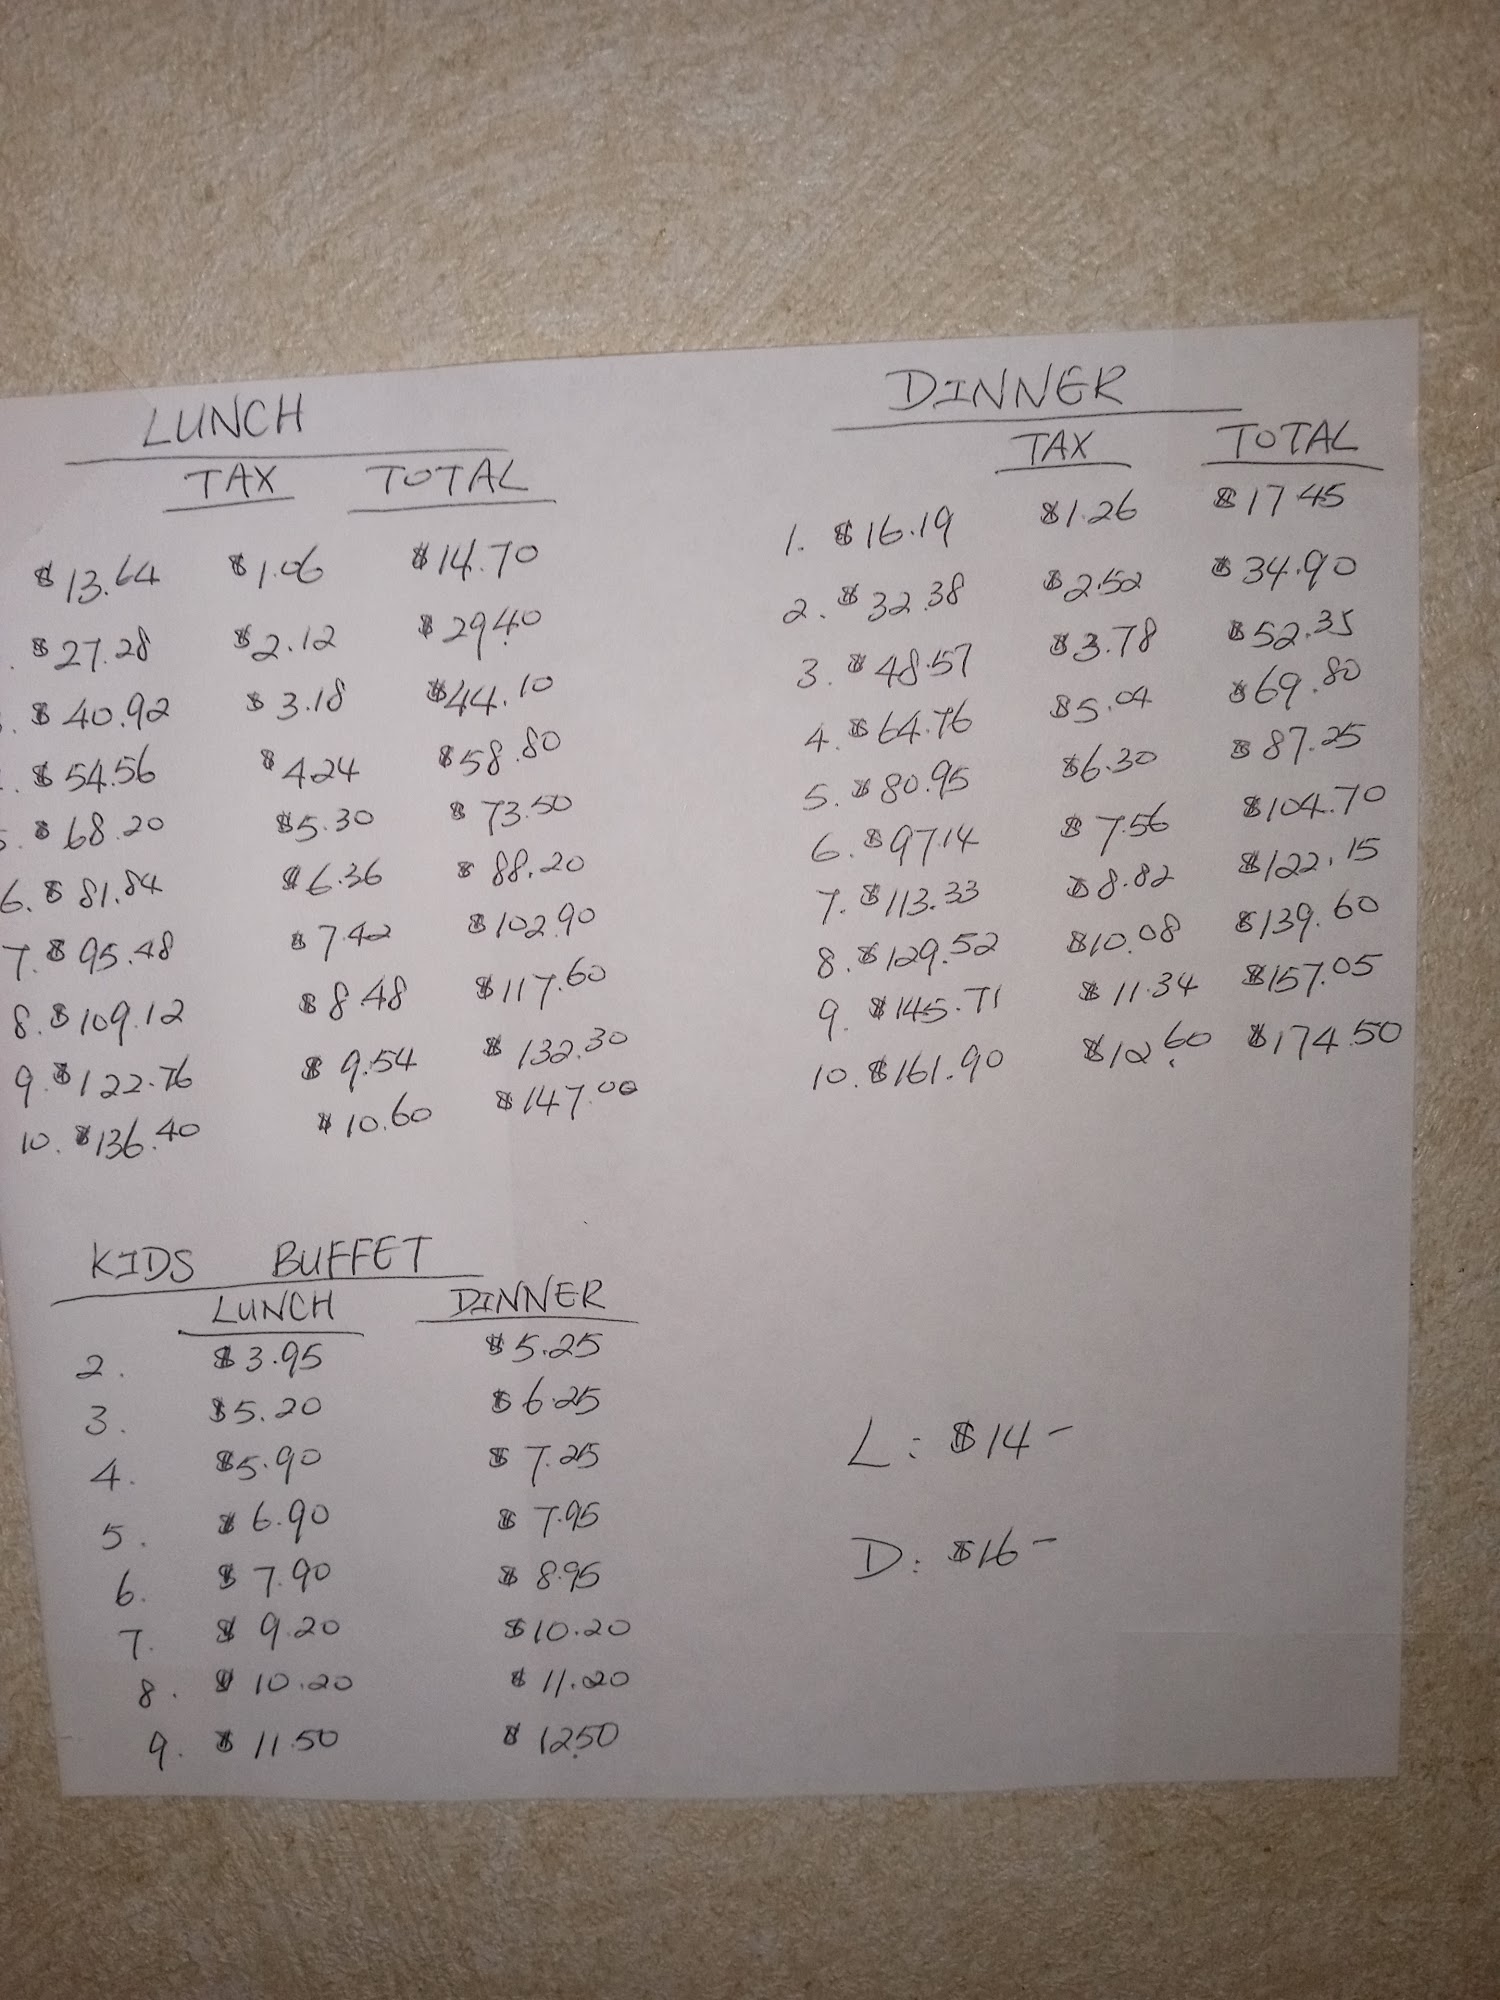 LUNCH
TAX TOTAL
$13.64 $1.06 $14.70
. $27.28 $2.12 $29.40
. $40.92 $3.18 $44.10
. $54.56 $4.24 $58.80
5. $68.20 $5.30 $73.50
6. $81.84 $6.36 $88.20
7. $95.48 $7.42 $102.90
8. $109.12 $8.48 $117.60
9. $122.76 $9.54 $132.30
10. $136.40 $10.60 $147.00
DINNER
TAX TOTAL
1. $16.19 $1.26 $17.45
2. $32.38 $2.52 $34.90
3. $48.57 $3.78 $52.35
4. $64.76 $5.04 $69.80
5. $80.95 $6.30 $87.25
6. $97.14 $7.56 $104.70
7. $113.33 $8.82 $122.15
8. $129.52 $10.08 $139.60
9. $145.71 $11.34 $157.05
10. $161.90 $12.60 $174.50
KIDS BUFFET
LUNCH DINNER
2. $3.95 $5.25
3. $5.20 $6.25
4. $5.90 $7.25
5. $6.90 $7.95
6. $7.90 $8.95
7. $9.20 $10.20
8. $10.20 $11.20
9. $11.50 $12.50
L: $14-
D: $16-